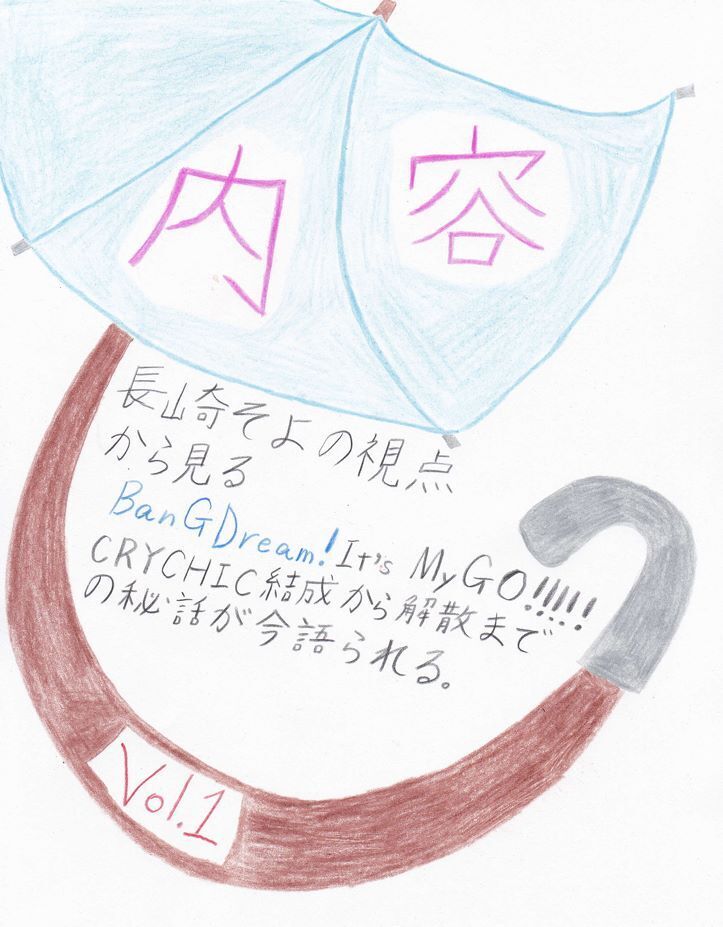 内容
長崎そよの視点
から見る
BanG Dream! It's MyGO!!!!!
CRYCHIC結成から解散まで
の秘話が今語られる。
Vol.1